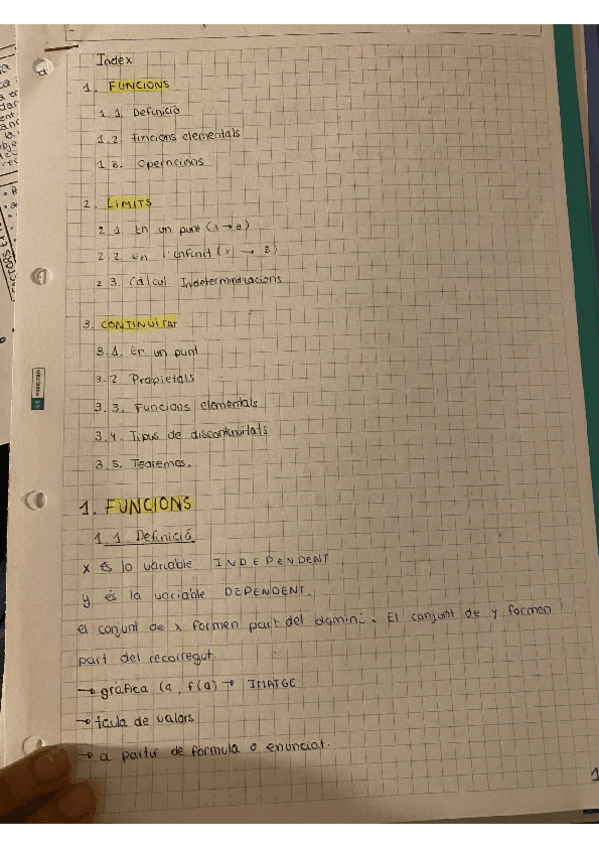 Index
1. FUNCIONS
1.1. Definició
1.2 funcions elementals
1.3. Operacions
2. LIMITS
2.1 En un punt (x→a)
2.2 en l'infinit (x → a)
2.3. Càlcul Indeterminacions
3. CONTINUITAT
3.1. En un punt
3.2 Propietats
3.3. Funcions elementals
3.4. Tipus de discontinuitats
3.5. Teoremes.
1. FUNCIONS
1.1. Definició
x és la variable INDEPENDENT
y és la variable DEPENDENT.
el conjunt de x formen part del domini. El conjunt de y formen
part del recorregut
→ gràfica (a, f(a) → IMATGE
→ taula de valors
→ a partir de formula o enunciat.
1